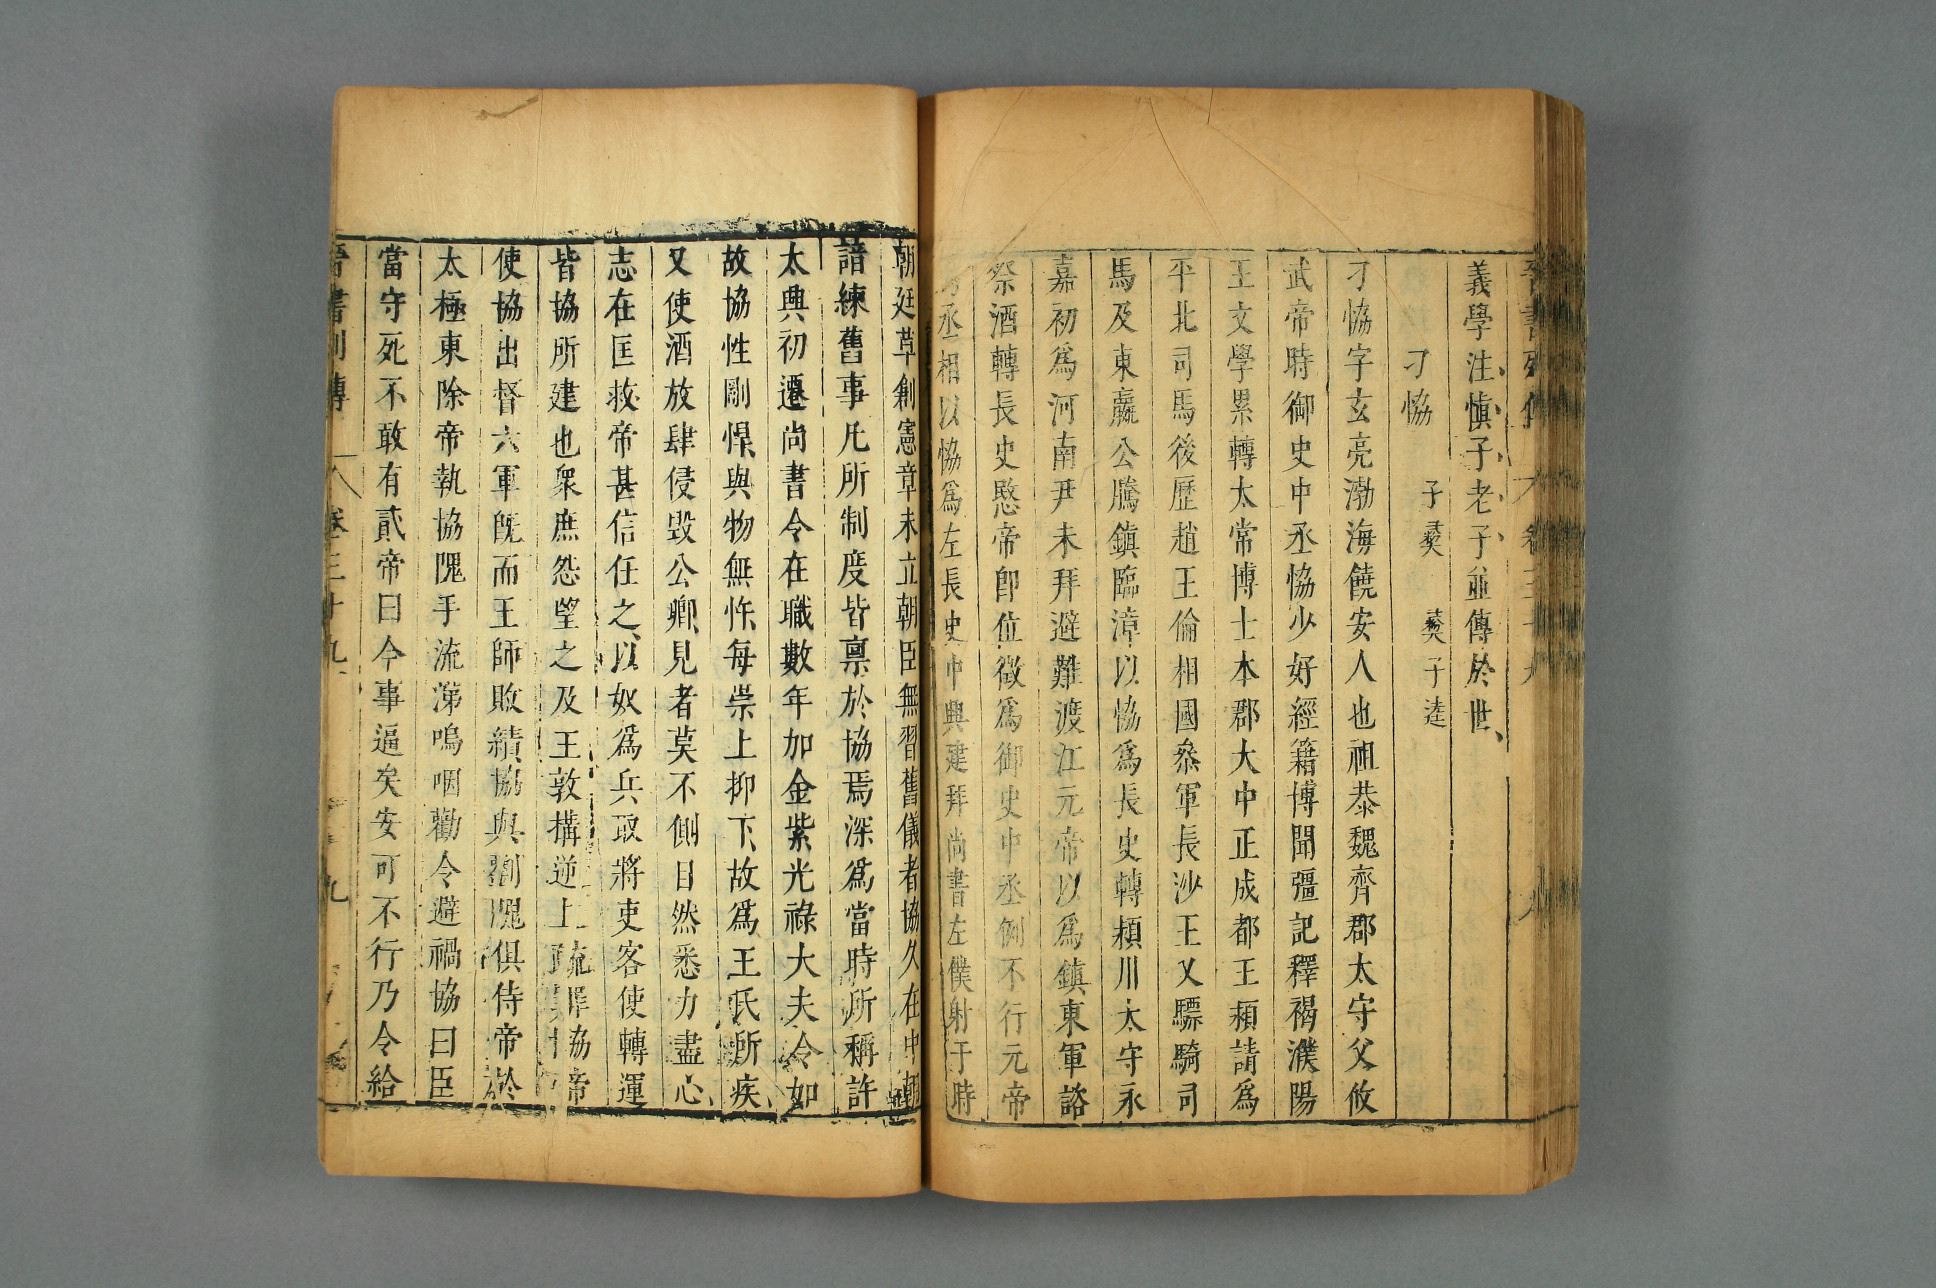 晉書列傳 卷三十九 九
義學注慎子老子並傳於世
刁恊 子彝 彝子逵
刁恊字玄亮渤海饒安人也祖恭魏齊郡太守父攸
武帝時御史中丞恊少好經籍博聞彊記釋褐濮陽
王文學累轉太常博士本郡大中正成都王潁請爲
平北司馬後歷趙王倫相國叅軍長沙王乂驃騎司
馬及東嬴公騰鎮臨漳以恊爲長史轉潁川太守永
嘉初爲河南尹未拜避難渡江元帝以爲鎮東軍諮
祭酒轉長史愍帝卽位徵爲御史中丞例不行元帝
爲丞相以恊爲左長史中興建拜尚書左僕射于時
朝廷草創憲章未立朝臣無習舊儀者協久在中朝
諳練舊事凡所制度皆禀於協焉深爲當時所稱許
太興初遷尚書令在職數年加金紫光祿大夫令如
故協性剛悍與物無忤每崇上抑下故爲王氏所疾
又使酒放肆侵毀公卿見者莫不側目然悉力盡心
志在匡救帝甚信任之以奴爲兵取將吏客使轉運
皆協所建也衆庶怨望之及王敦搆逆上疏罪協帝
使協出督六軍旣而王師敗績協與劉隗俱侍帝於
太極東除帝執協隗手流涕嗚咽勸令避禍協曰臣
當守死不敢有貳帝曰今事逼矣安可不行乃令給
晉書列傳 卷三十九 九